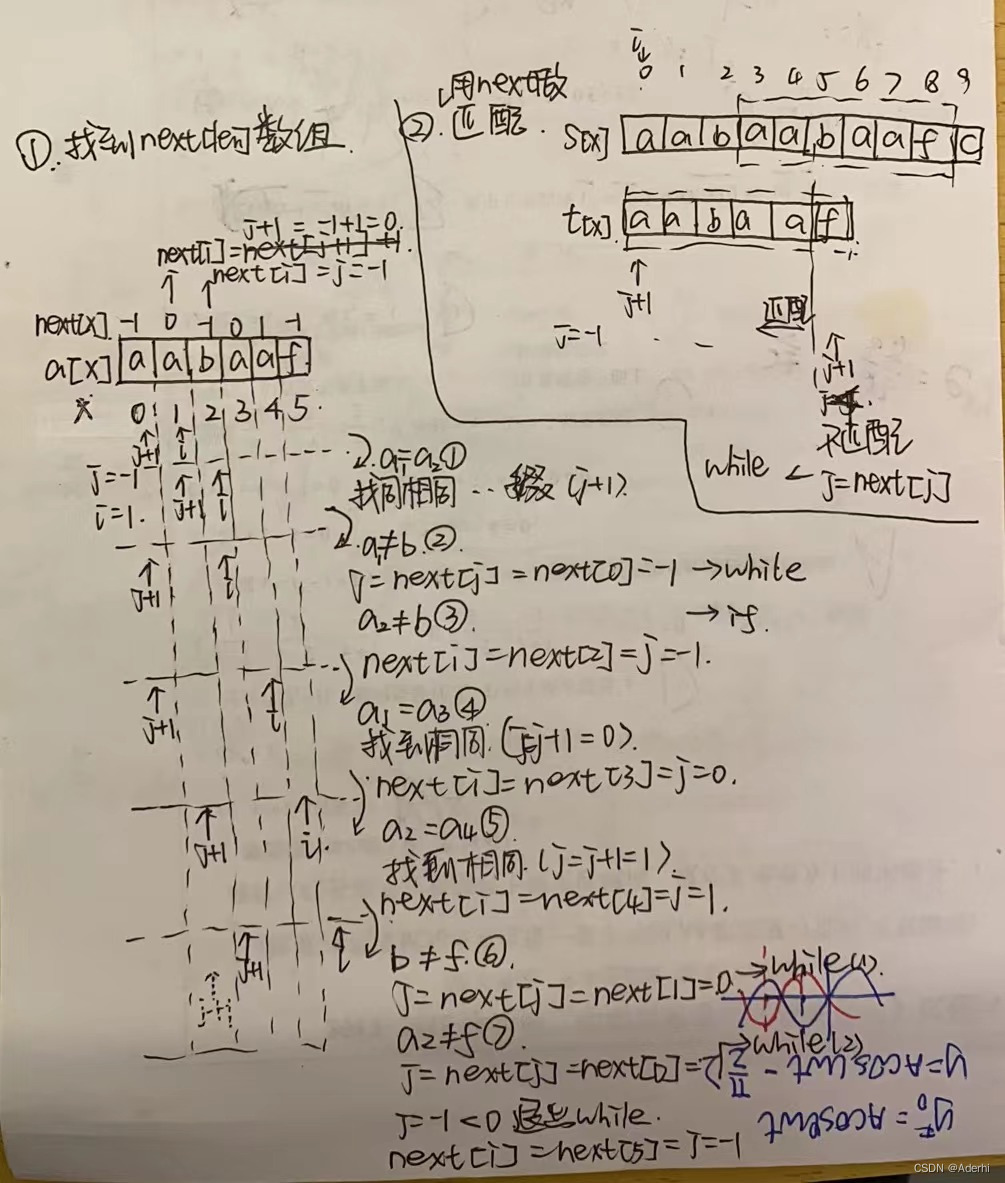 ①.找到next[]的数组.
j+1 = -1+1=0.
next[i]=next[j+1]+1
next[i]=j=-1
next[x] -1 0 -1 0 1 -1
a[x] a a b a a f
x 0 1 2 3 4 5.
j+1 i
j=-1
i=1.
j+1 i
j+1 i
j+1 i
j+1 i
j+1 i
j+1
②.用next做
匹配.
i
0 1 2 3 4 5 6 7 8 9
s[x] a a b a a b a a f c
t[x]. a a b a a f
-1
j+1
j=-1
匹配
j+1
不匹配
while ← j=next[j]
a1=a2①
找到相同 (j+1).
a1≠b.②.
j=next[j]=next[0]=-1 →while
→if.
a2≠b③.
next[i]=next[2]=j=-1.
a1=a3④
找到相同.(j=j+1=0).
next[i]=next[3]=j=0.
a2=a4⑤.
找到相同.(j=j+1=1).
next[i]=next[4]=j=1.
b≠f.⑥.
j=next[j]=next[1]=0. →while(1).
a2≠f⑦.
→while(2)
j=next[j]=next[0]=
j=-1<0 退出while.
next[i]=next[5]=j=-1
y=Acos(wt-π/2)
=Acoswt
CSDN @Aderhi